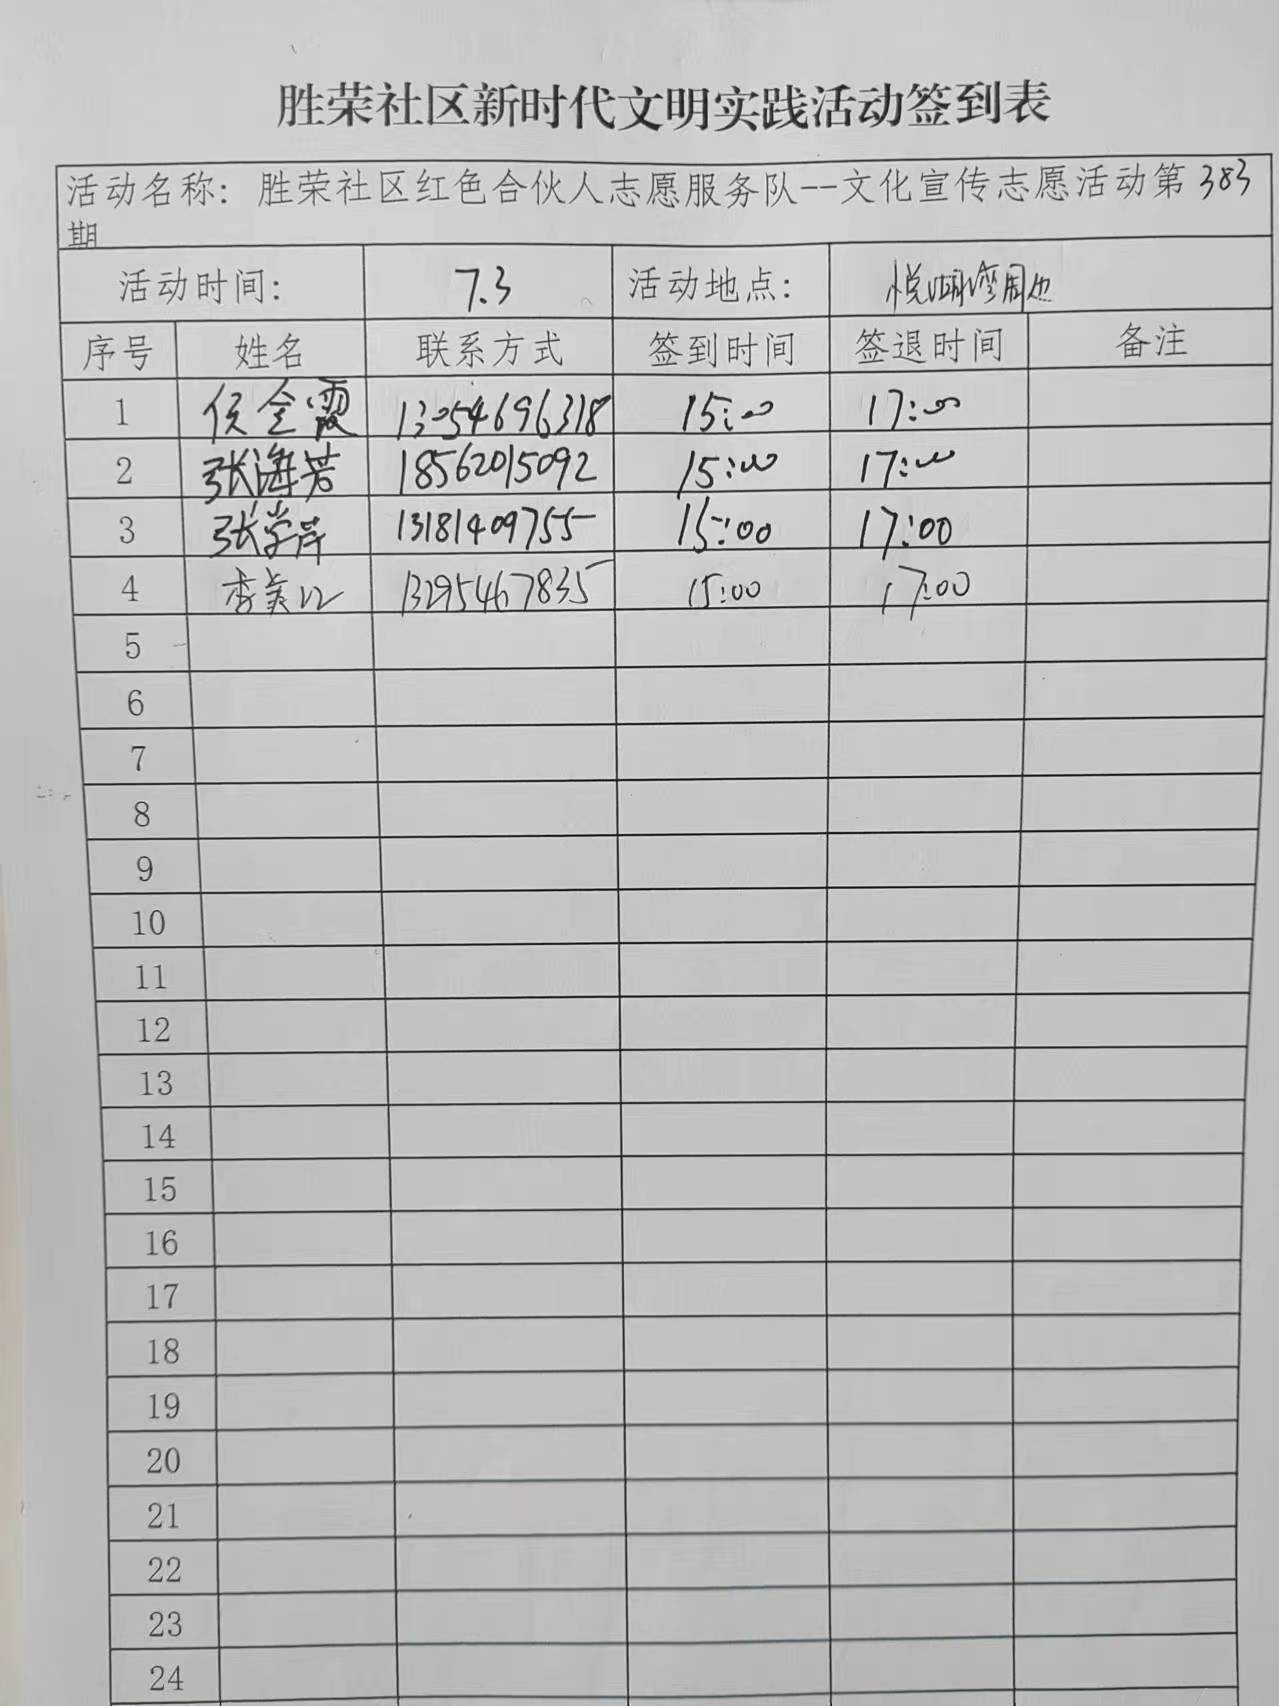 胜荣社区新时代文明实践活动签到表
活动名称：胜荣社区红色合伙人志愿服务队--文化宣传志愿活动第383
期
活动时间： 7.3 活动地点： 悦湖湾周边
序号 姓名 联系方式 签到时间 签退时间 备注
1 侯全霞 13054696318 15:00 17:00
2 张海芳 18562015092 15:00 17:00
3 张学芹 13181409755 15:00 17:00
4 李美江 13295467835 15:00 17:00
5
6
7
8
9
10
11
12
13
14
15
16
17
18
19
20
21
22
23
24